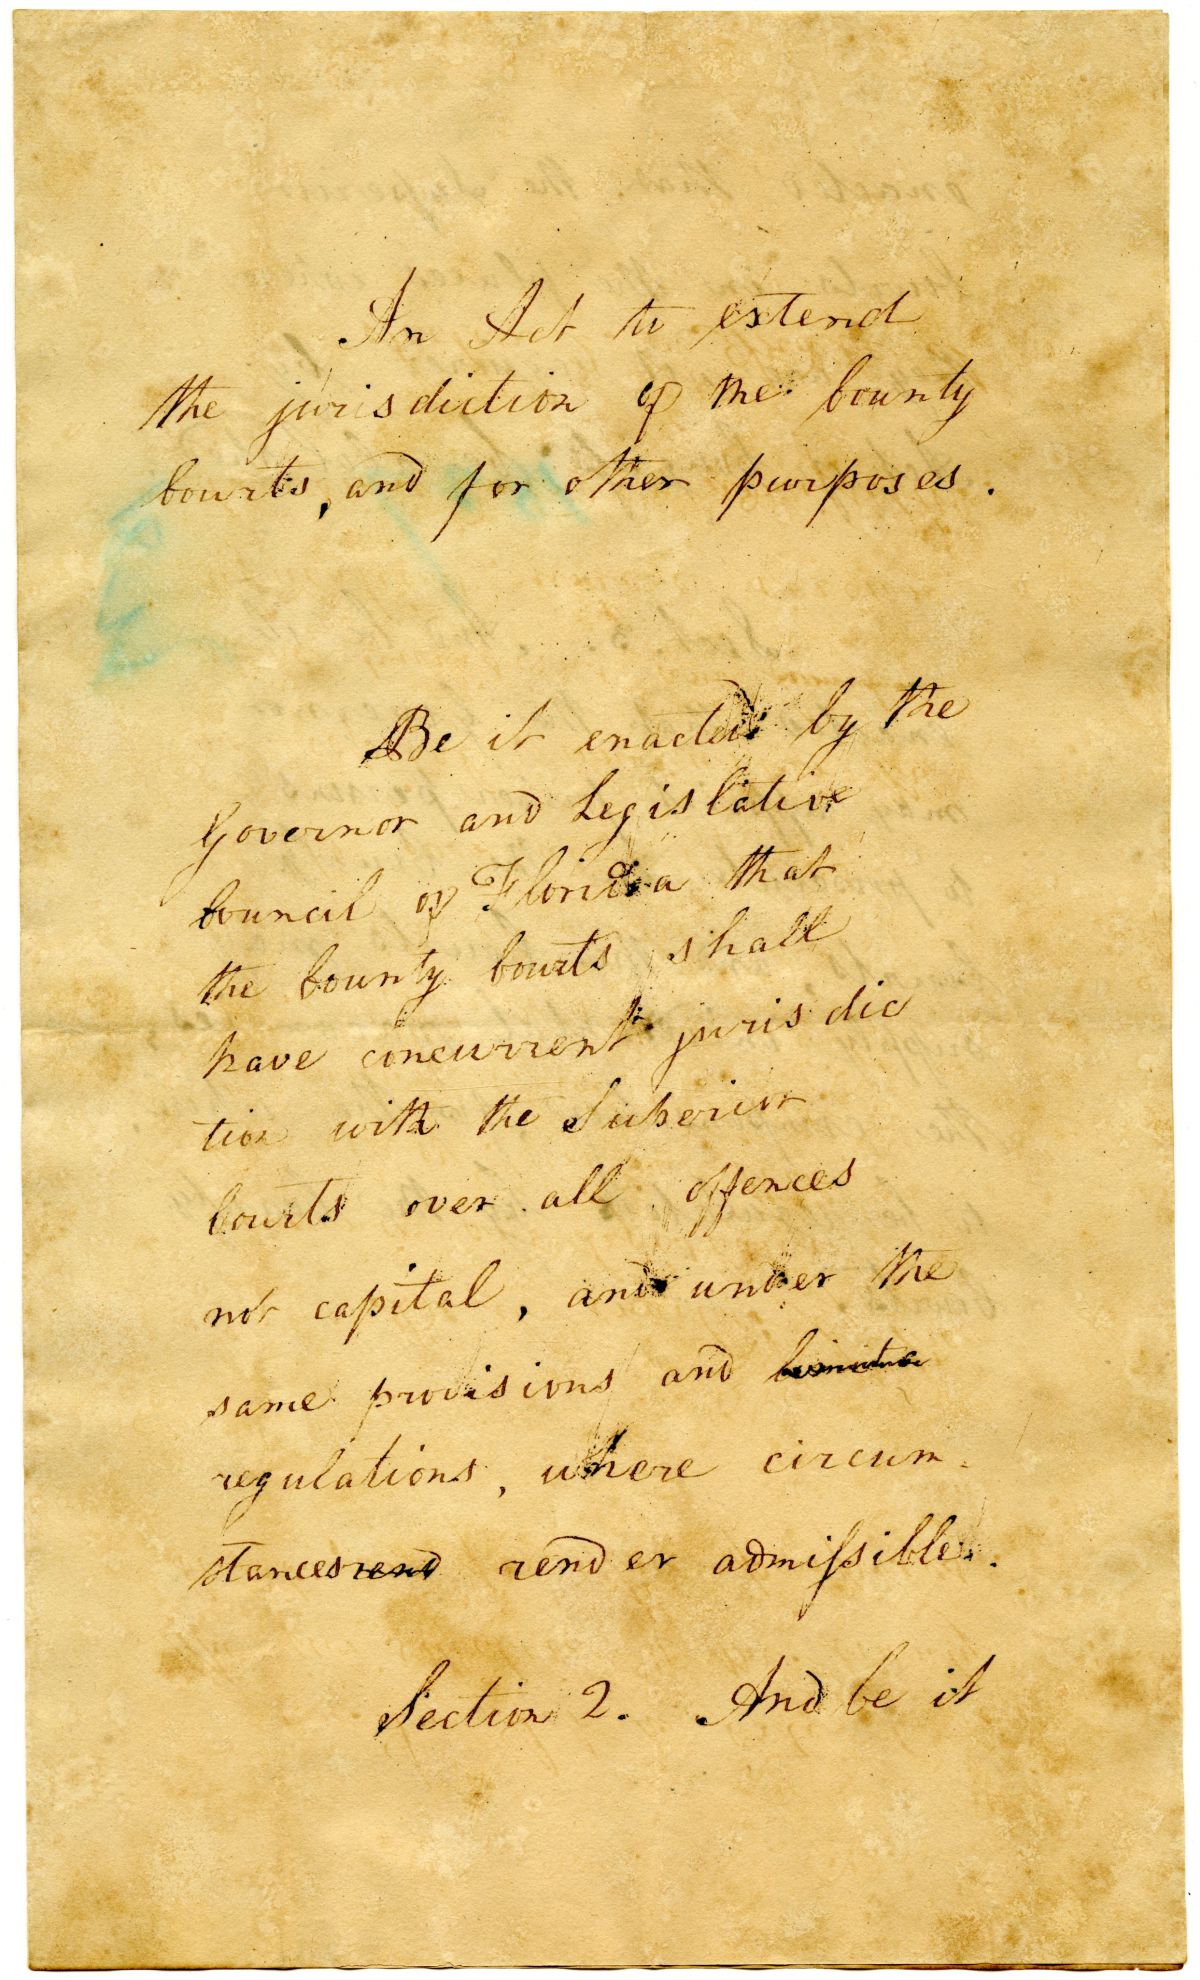 An Act to extend
the jurisdiction of the County
Courts, and for other purposes.
Be it enacted by the
Governor and Legislative
Council of Florida that
the County Courts shall
have concurrent jurisdic
tion with the Superior
Courts over all offences
not capital, and under the
same provisions and
regulations, where circum-
stances rend render admissible.
Section 2. And be it